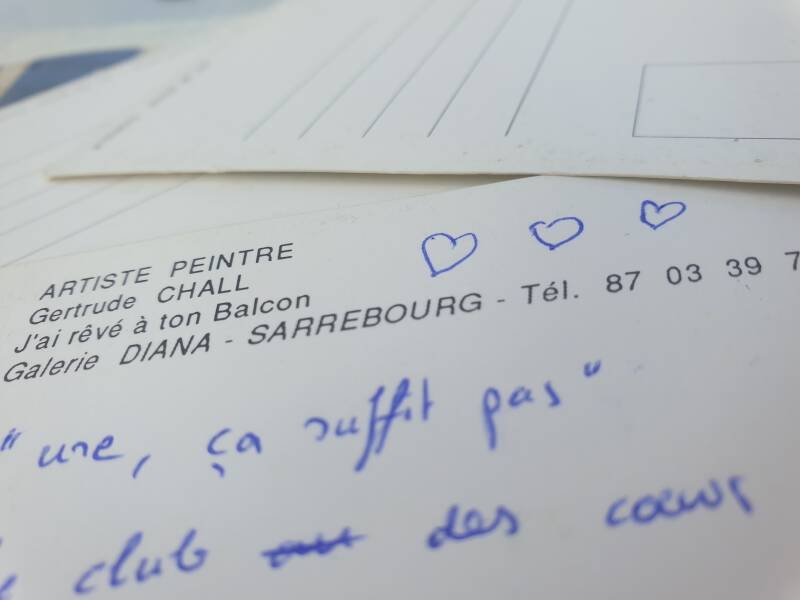 ARTISTE PEINTRE
Gertrude CHALL
J'ai rêvé à ton Balcon
Galerie DIANA - SARREBOURG - Tél. 87 03 39 7
"une, ça suffit pas"
club au des cœurs